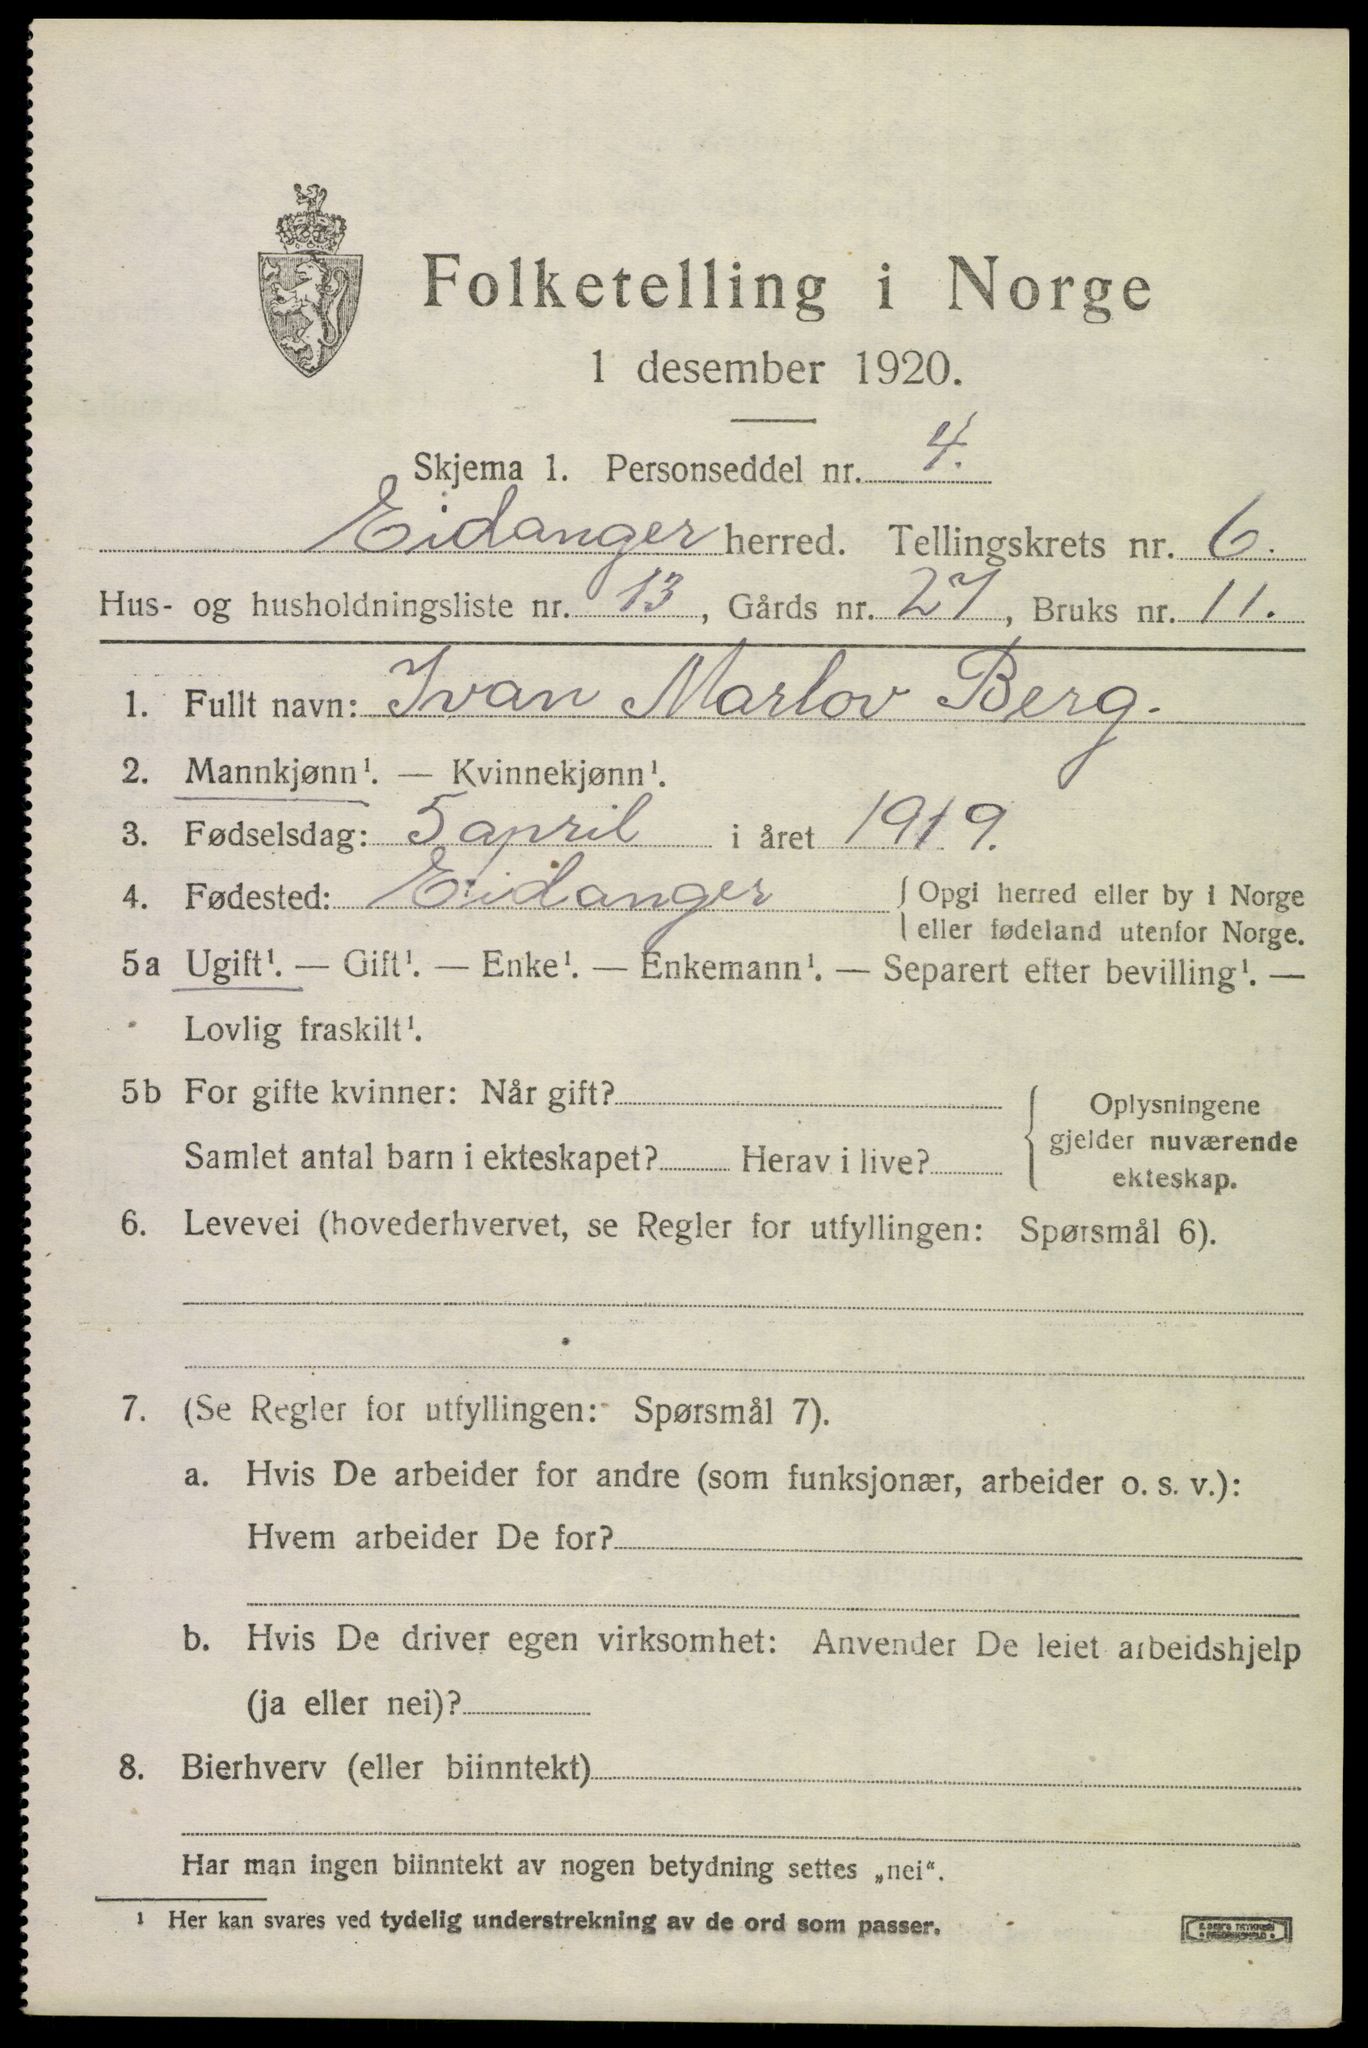 Folketelling i Norge
1 desember 1920.
Skjema 1. Personseddel nr. 4.
Eidanger herred. Tellingskrets nr. 6.
Hus- og husholdningsliste nr. 13, Gårds nr. 27, Bruks nr. 11.
1. Fullt navn: Ivan Marlov Berg.
2. Mannkjønn¹. — Kvinnekjønn¹.
3. Fødselsdag: 5 april i året 1919.
4. Fødested: Eidanger { Opgi herred eller by i Norge
eller fødeland utenfor Norge.
5a Ugift¹. — Gift¹. — Enke¹. — Enkemann¹. — Separert efter bevilling¹. —
Lovlig fraskilt¹.
5b For gifte kvinner: Når gift?
Samlet antal barn i ekteskapet? Herav i live?
{ Oplysningene
gjelder nuværende
ekteskap.
6. Levevei (hovederhvervet, se Regler for utfyllingen: Spørsmål 6).
7. (Se Regler for utfyllingen: Spørsmål 7).
a. Hvis De arbeider for andre (som funksjonær, arbeider o. s. v.):
Hvem arbeider De for?
b. Hvis De driver egen virksomhet: Anvender De leiet arbeidshjelp
(ja eller nei)?
8. Bierhverv (eller biinntekt)
Har man ingen biinntekt av nogen betydning settes „nei“.
¹ Her kan svares ved tydelig understrekning av de ord som passer.